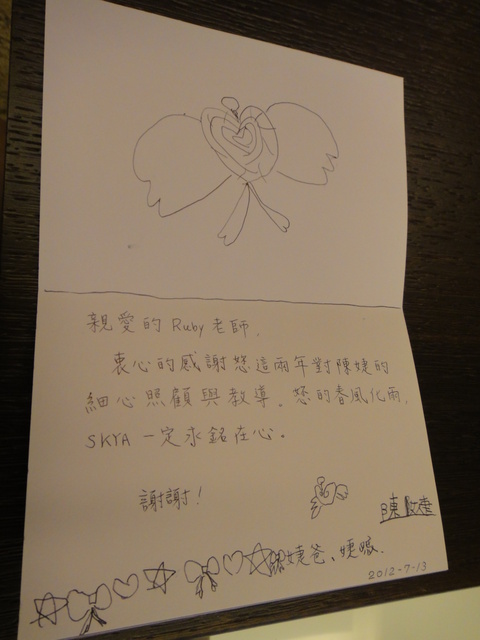 親愛的 Ruby 老師,
衷心的感謝您這兩年對陳婕的
細心照顧與教導。您的春風化雨,
SKYA 一定永銘在心。
謝謝!
陳
婕爸、婕媽
2012-7-13